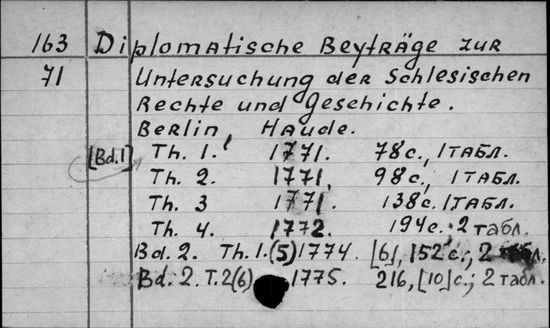 163 Diplomatische Beyträge zur
71 Untersuchung der Schlesischen
Rechte und Geschichte.
Berlin, Haude.
[Bd.1] Th. 1. 1771. 78 с., 1 ТАБЛ.
Th. 2. 1771. 98 с., 1 ТАБЛ.
Th. 3 1771. 138 с. 1 ТАБЛ.
Th. 4. 1772. 194 с. 2 табл.
Bd. 2. Th. 1. (5) 1774. [6], 152 с.; 2 табл.
Bd. 2. T. 2 (6) 1775. 216, [10] с.; 2 табл.